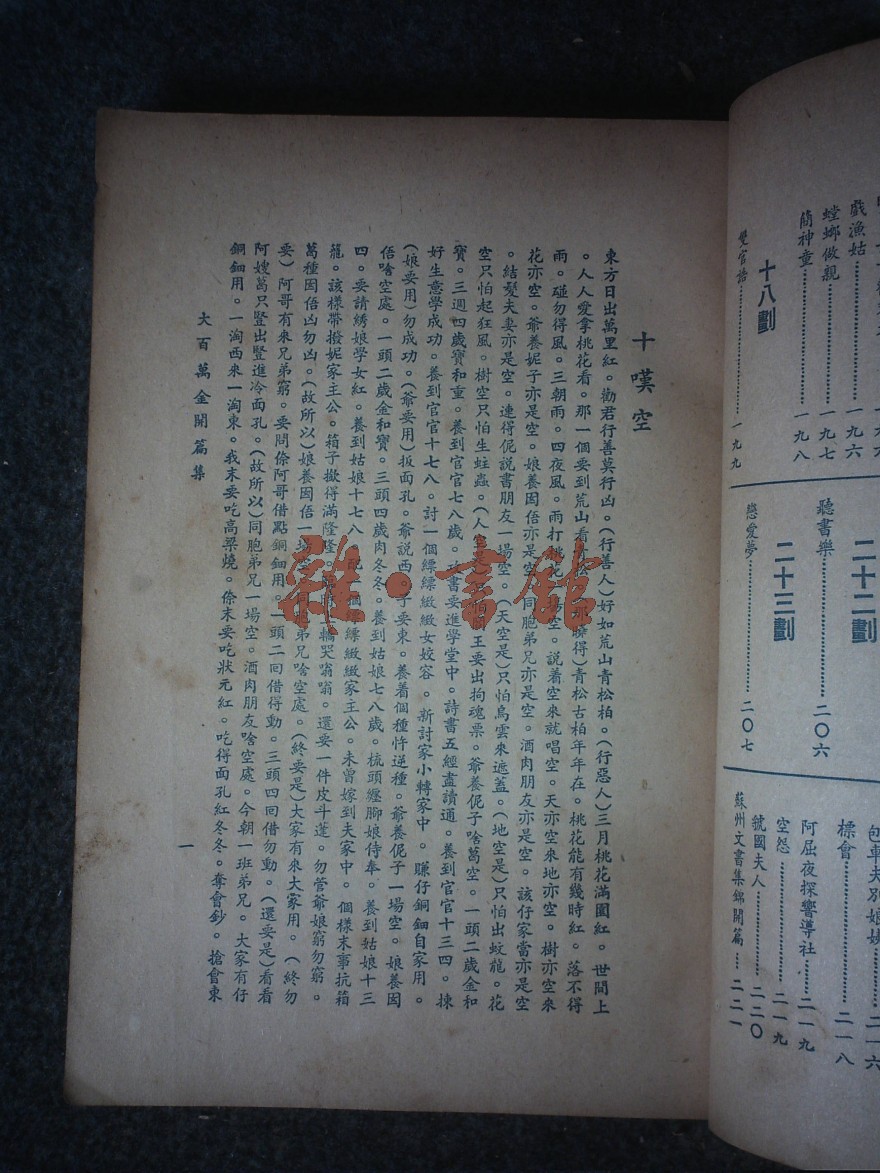 戲漁姑⋯⋯⋯⋯一九六
螳螂做親⋯⋯⋯⋯一九七
簡神童⋯⋯⋯⋯一九八
十八劃
雙官誥⋯⋯⋯⋯一九九
二十二劃
聽書樂⋯⋯⋯⋯二〇六
二十三劃
戀愛夢⋯⋯⋯⋯二〇七
車夫別娘⋯⋯二一六
標會⋯⋯⋯⋯二一八
阿屈夜探響導社⋯二一九
空怨⋯⋯⋯⋯二一九
虢國夫人⋯⋯⋯⋯二二〇
蘇州文書集錦開篇⋯二二一
十嘆空
東方日出萬里紅。勸君行善莫行凶。(行善人)好如荒山青松柏。(行惡人)三月桃花滿園紅。世間上
。人人愛拿桃花看。那一個要到荒山看 得)青松古柏年年在。桃花能有幾時紅。落不得
雨。碰勿得風。三朝雨。四夜風。雨打桃花 空。説着空來就唱空。天亦空來地亦空。樹亦空來
花亦空。爺養妮子亦是空。娘養囡倍亦是空。同胞弟兄亦是空。酒肉朋友亦是空。該仔家當亦是空
。結髮夫妻亦是空。連得伲説書朋友一場空。(天空是)只怕烏雲來遮蓋。(地空是)只怕出蛟龍。花
空只怕起狂風。樹空只怕生蛀蟲。(人 王要出拘魂票。爺養伲子啥葛空。一頭二歲金和
寶。三週四歲寶和重。養到官官七八歲。 書要進學堂中。詩書五經盡讀通。養到官官十三四。揀
好生意學成功。養到官官十七八。討一個縹縹緻緻女姣容。新討家小轉家中。賺仔銅鈿自家用。
(娘要用)勿成功。(爺要用)扳面孔。爺説西 子要東。養着個種忤逆種。爺養伲子一場空。娘養囡
倍啥空處。一頭二歲金和寶。三頭四歲肉冬冬。養到姑娘七八歲。梳頭纏脚娘侍奉。養到姑娘十三
四。要請綉娘學女紅。養到姑娘十七八。 個縹縹緻緻家主公。未曾嫁到夫家中。個樣末事抗箱
籠。該樣帶撥妮家主公。箱子撳得滿隆隆。 轎哭嗡嗡。還要一件皮斗蓬。勿管爺娘窮勿窮。
葛種囡倍凶勿凶。(故所以)娘養囡倍一場空。同胞弟兄啥空處。(終要是)大家有來大家用。(終勿
要)阿哥有來兄弟窮。要問倷阿哥借點銅鈿用。一頭二回借得動。三頭四回借勿動。(還要是)看看
阿嫂葛只豎出豎進冷面孔。(故所以)同胞弟兄一場空。酒肉朋友啥空處。今朝一班弟兄。大家有仔
銅鈿用。一淘西來一淘東。我末要吃高粱燒。倷末要吃狀元紅。吃得面孔紅冬冬。奪會鈔。搶會東
大百萬金開篇集
一
雜·書館